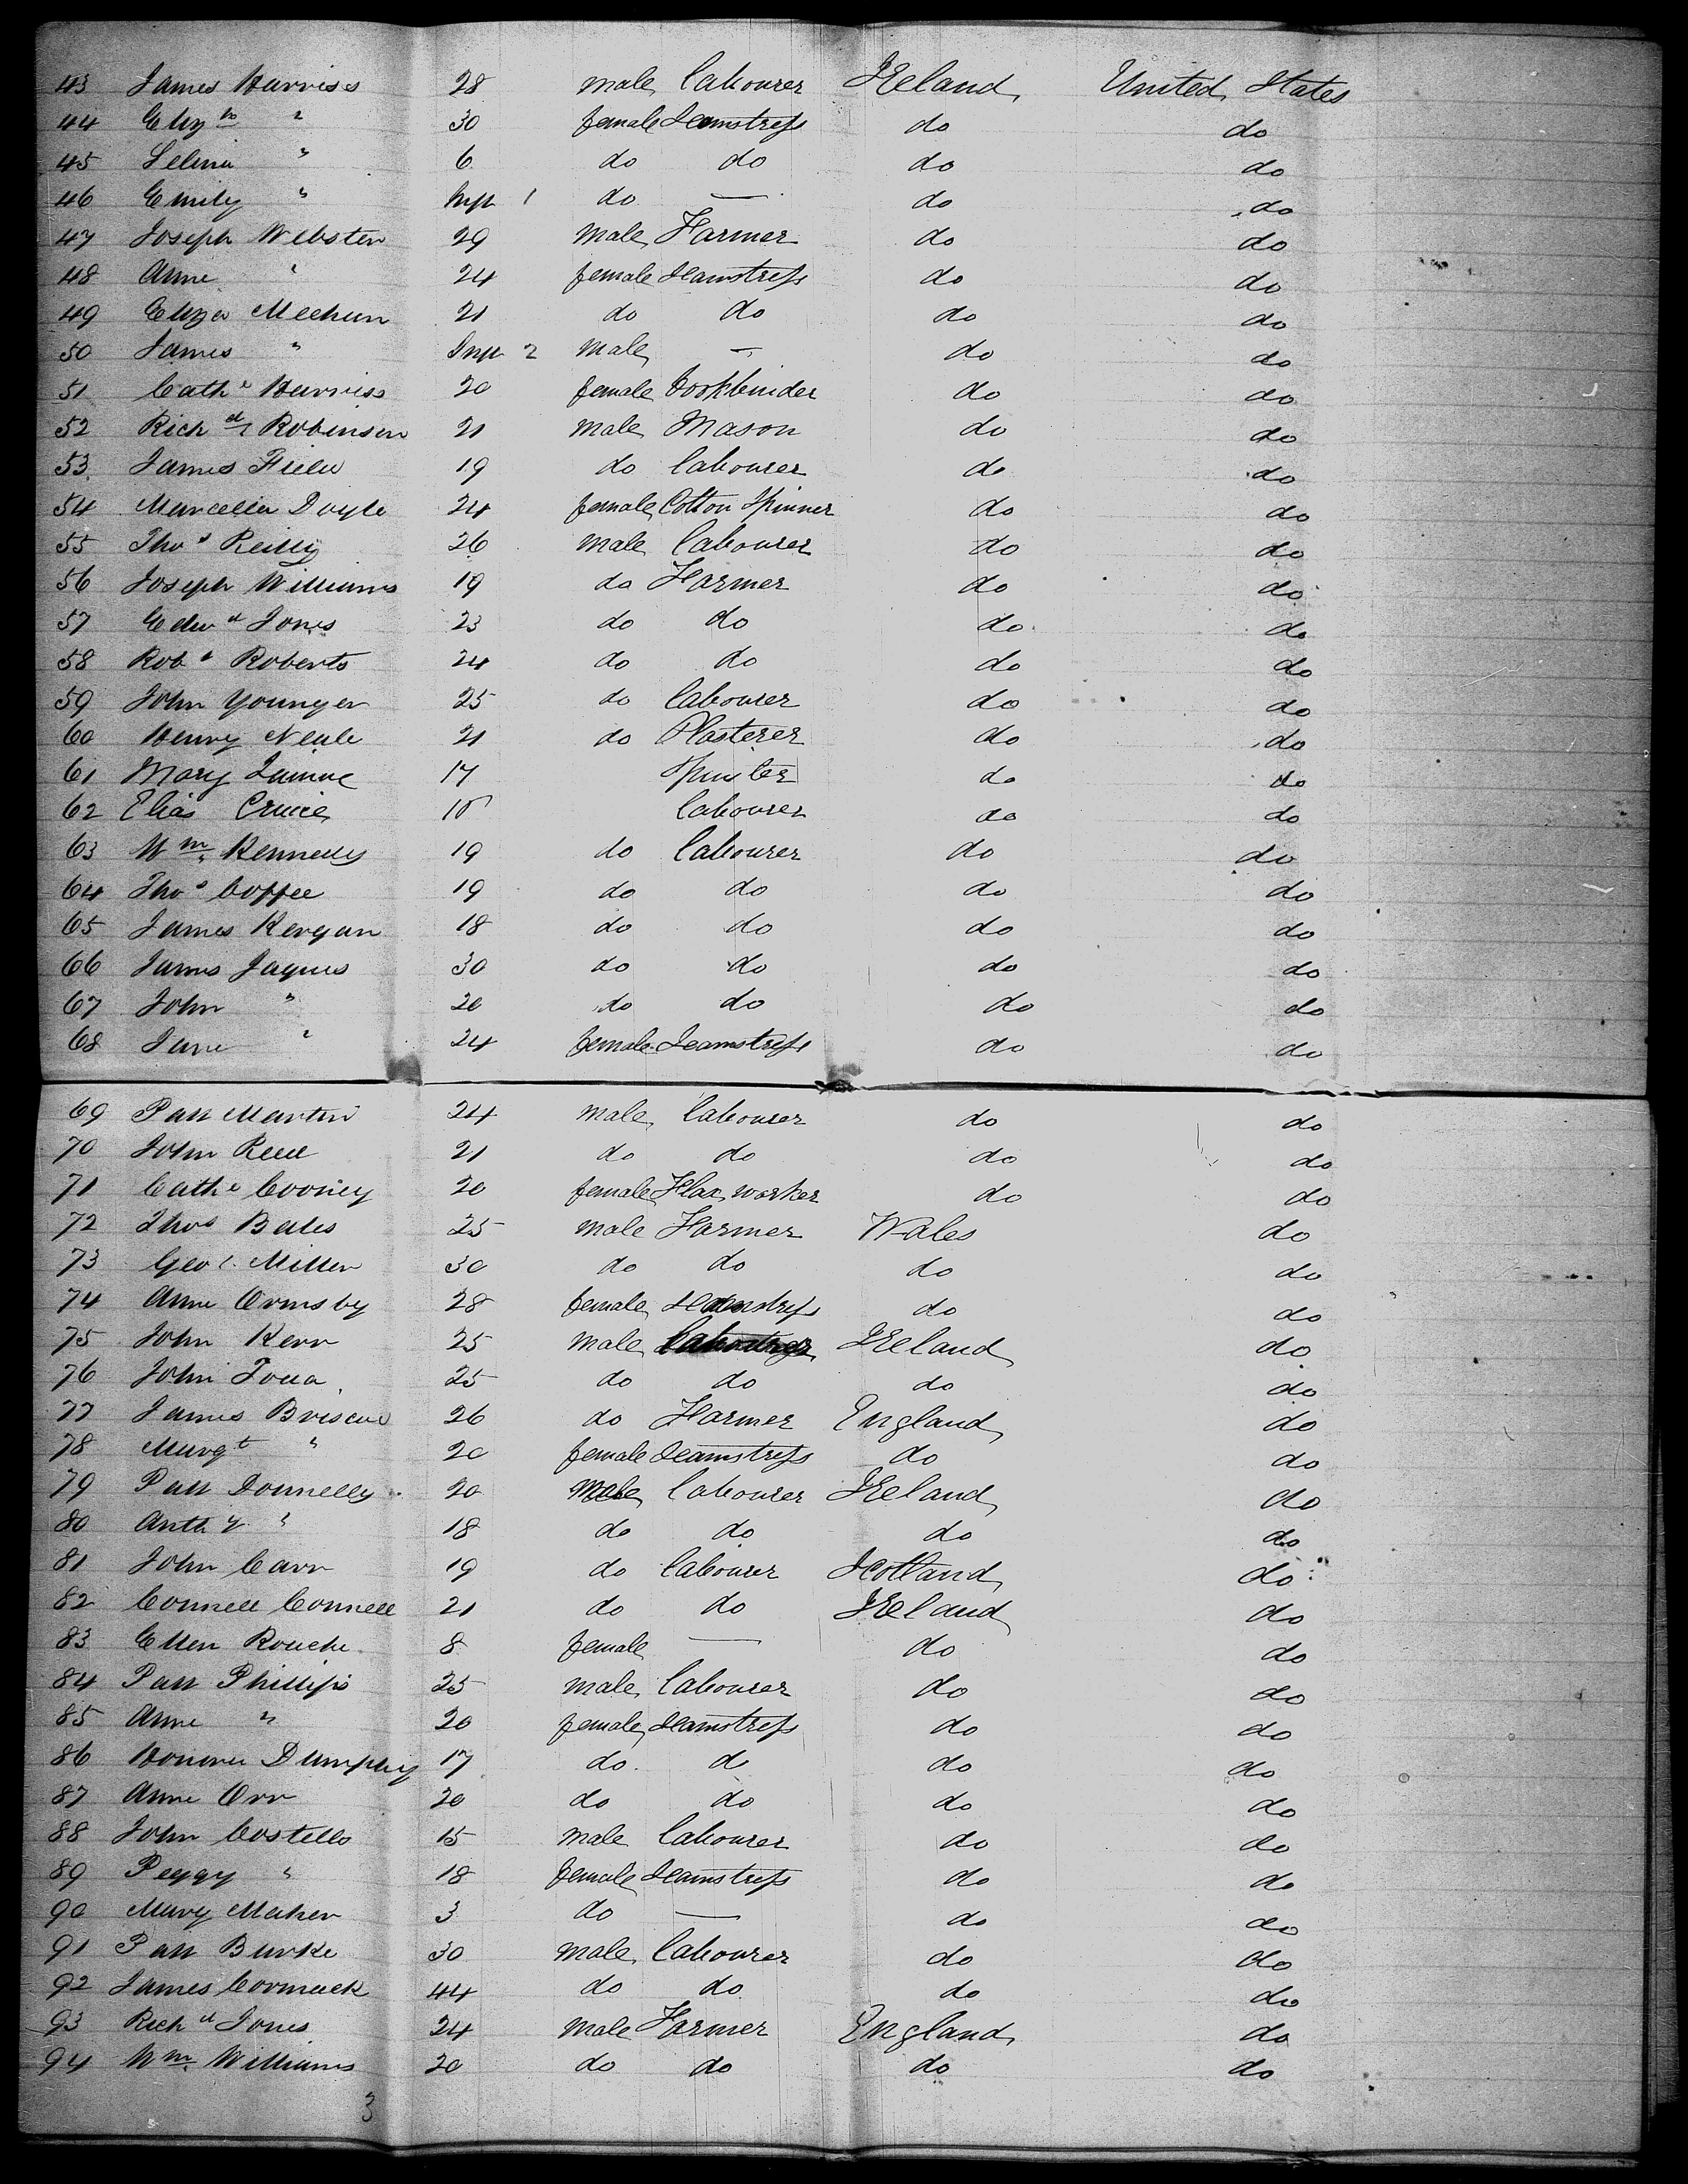 43 James Harriss 28 male Labourer Ireland United States
44 Elizth " 30 female Seamstress do do
45 Selina " 6 do do do do
46 Emily " Inft 1 do — do do
47 Joseph Webster 29 male Farmer do do
48 Anne " 24 female Seamstress do do
49 Eliza Meehun 21 do do do do
50 James " Inft 2 male — do do
51 Cathe Harriss 20 female Bookbinder do do
52 Richd Robinson 21 male Mason do do
53 James 19 do Labourer do do
54 Marcella Doyle 24 female Cotton Spinner do do
55 Thos Reilly 26 male Labourer do do
56 Joseph Williams 19 do Farmer do do
57 Edwd Jones 23 do do do do
58 Robt Roberts 24 do do do do
59 John Younger 25 do Labourer do do
60 Henry Neale 21 do Plasterer do do
61 Mary 17 Spinster do do
62 Elias Labourer do do
63 Wm Kennedy 19 do Labourer do do
64 Thos Coffee 19 do do do do
65 James Kergan 18 do do do do
66 James Jaques 30 do do do do
67 John " 20 do do do do
68 Jane " 24 female Seamstress do do
69 Patt Martin 24 male Labourer do do
70 John Reed 21 do do do do
71 Cathe Cooney 20 female Flax worker do do
72 Thos Bates 25 male Farmer Wales do
73 Geo Miller 30 do do do do
74 Anne Ormsby 28 female Seamstress do do
75 John Kerr 25 male Labourer Ireland do
76 John 25 do do do do
77 James Briscoe 26 do Farmer England do
78 Margt " 20 female Seamstress do do
79 Patt Donnelly 20 male Labourer Ireland do
80 Anthy " 18 do do do do
81 John Carr 19 do Labourer Scotland do
82 Connell Connell 21 do do Ireland do
83 Ellen Rouche 8 female — do do
84 Patt Phillips 25 male Labourer do do
85 Anne " 20 female Seamstress do do
86 Honora Dumphy 17 do do do do
87 Anne Orr 20 do do do do
88 John Costello 15 male Labourer do do
89 Peggy " 18 female Seamstress do do
90 Mary Maher 3 do — do do
91 Patt Burke 30 male Labourer do do
92 James Cormack 44 do do do do
93 Richd Jones 24 male Farmer England do
94 Wm Williams 20 do do do do
3